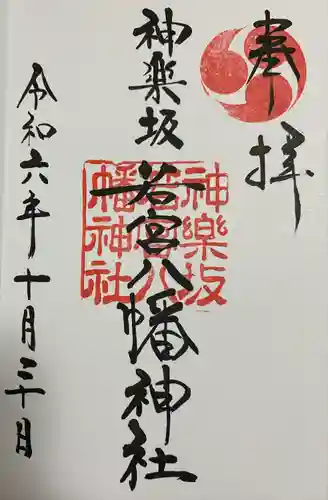 奉拝
神楽坂
若宮八幡神社
神樂坂
若宮八
幡神社
令和六年十月三十日